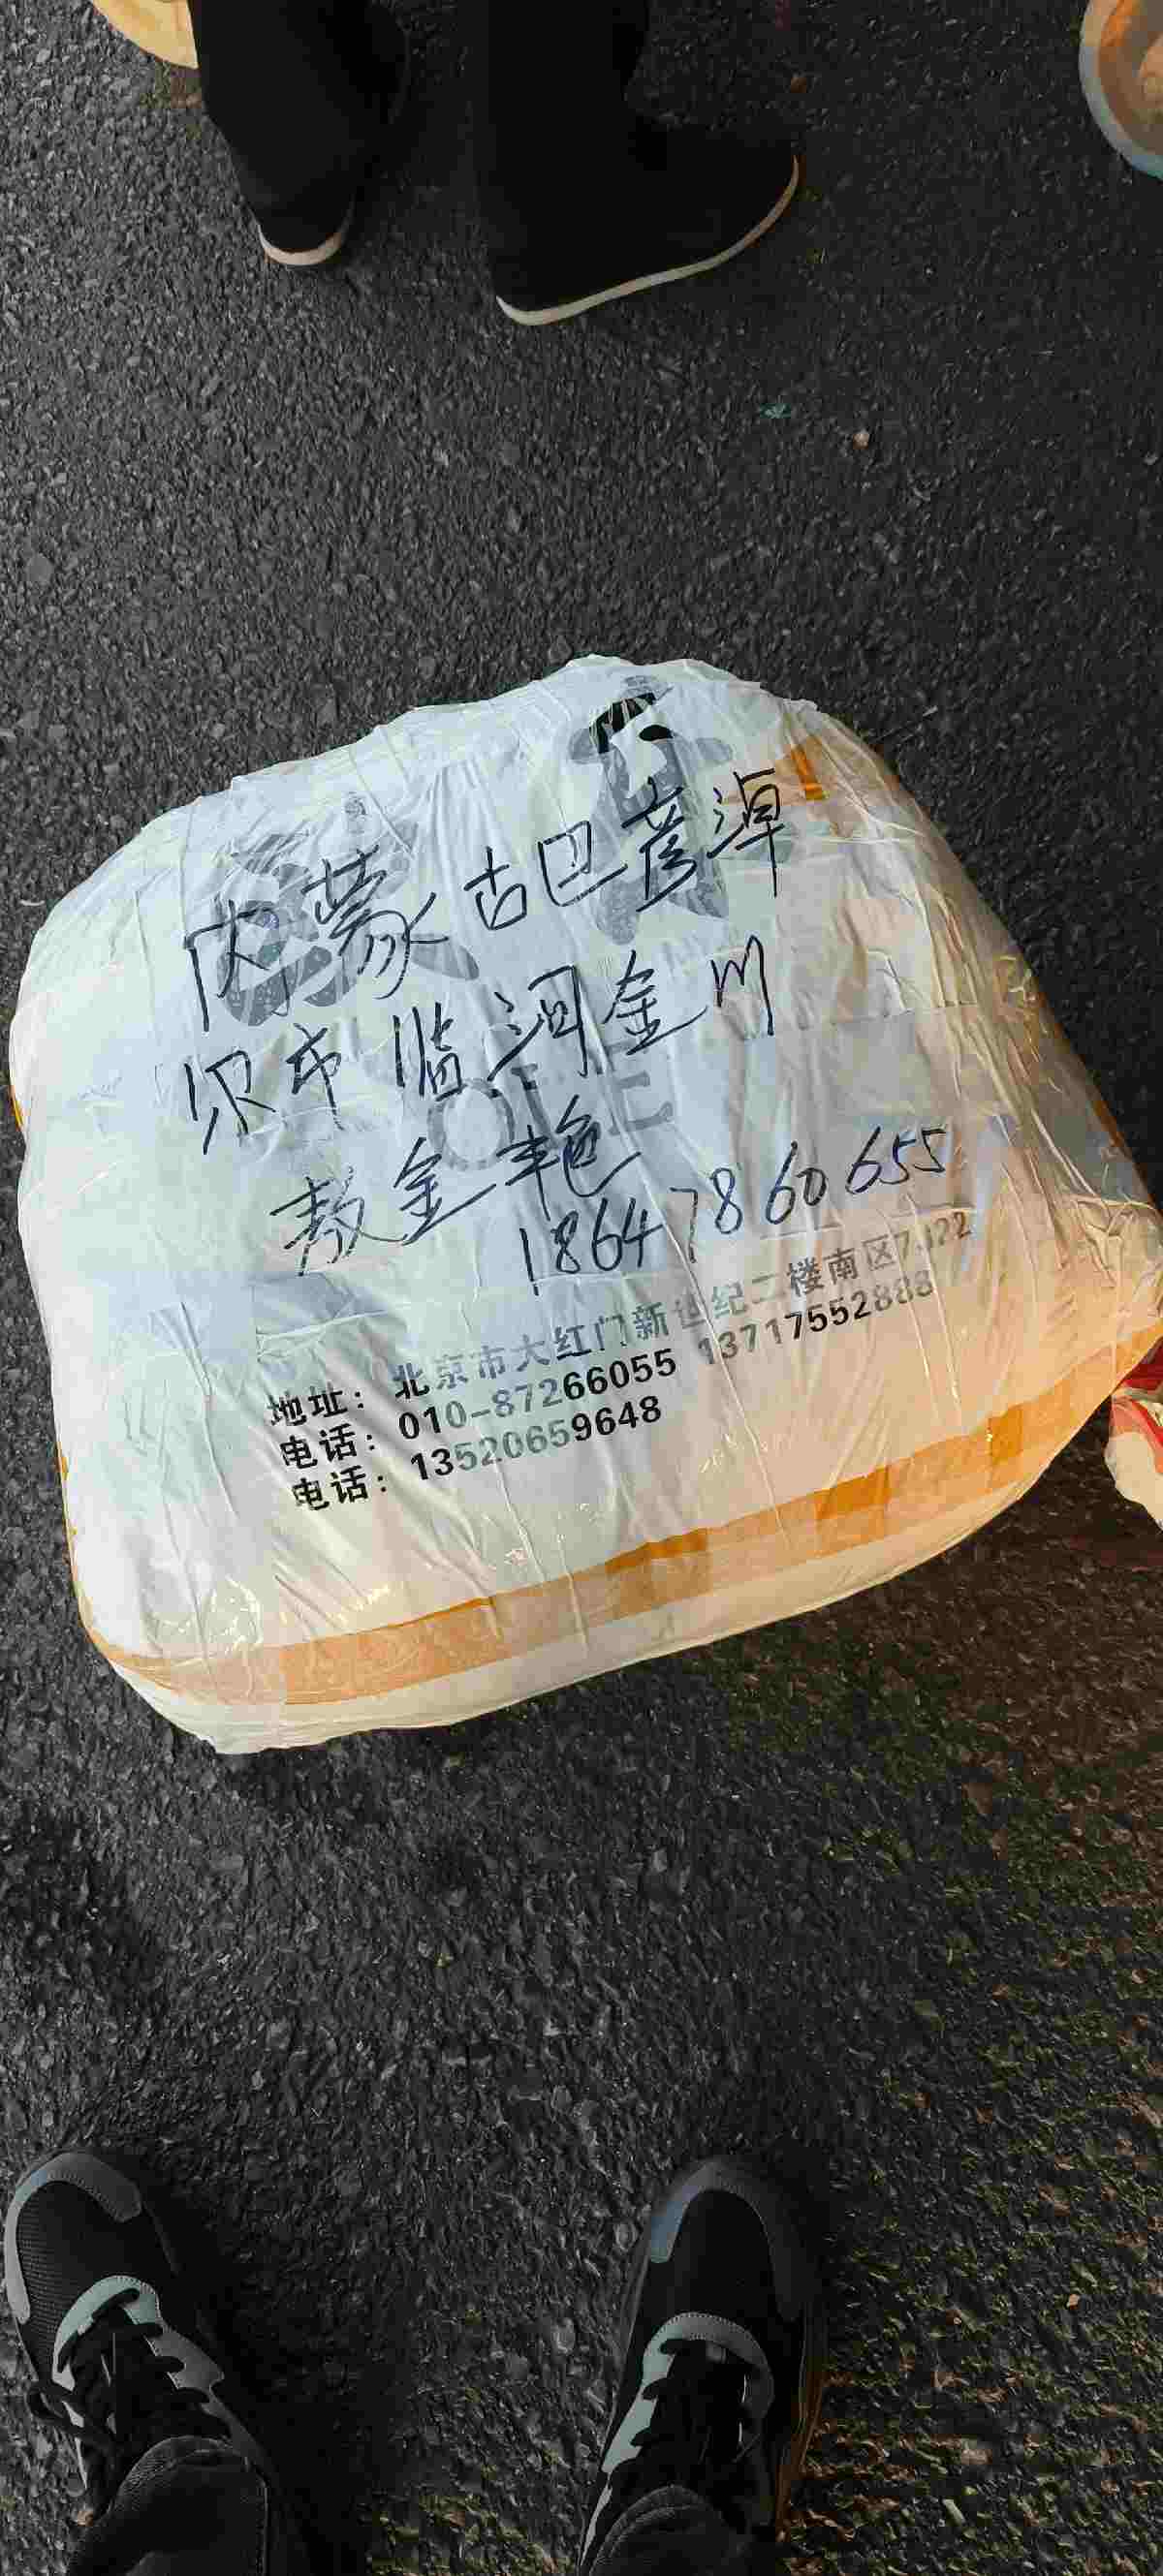 内蒙古巴彦淖
尔市临河金川
敖金艳
18647860655
地址：北京市大红门新世纪二楼南区7J22
电话：010-87266055 13717552888
电话：13520659648